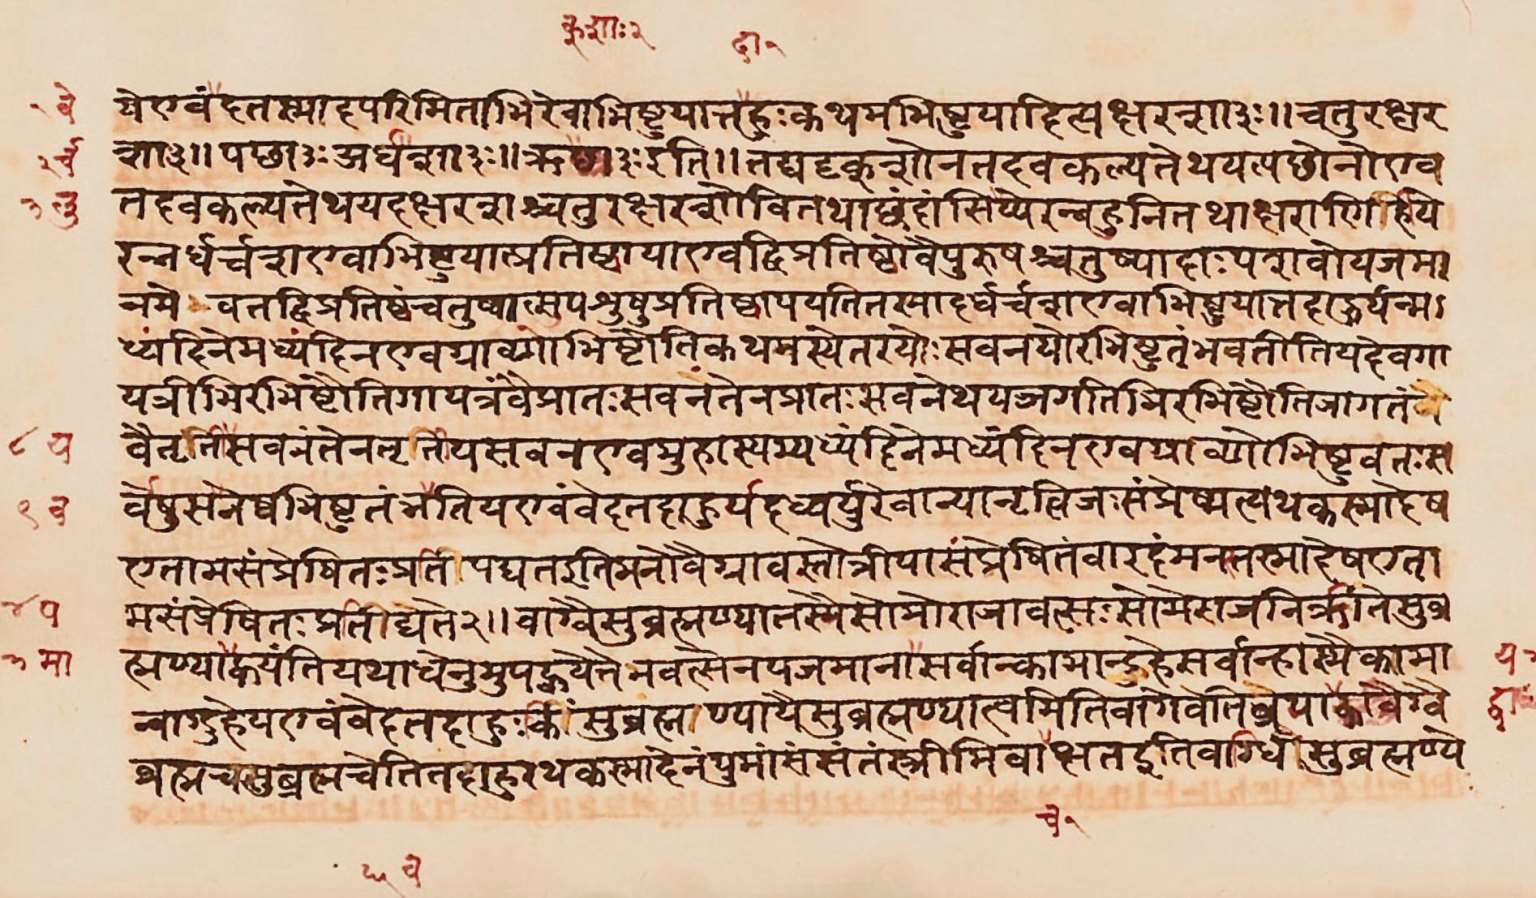 कुशाः२ दा॰
२ वे येएवंदतस्मादपरिमिताभिरेवाभिष्टुयात्तदाहुःकथमभिष्टुयादित्यक्षरशा३ः॥चतुरक्षर
२ र्च शा३ः॥पछा३ः अर्धर्चशा३ः॥ऋक्छा३ःइति॥तद्यदृक्शोनतदवकल्पतेथयत्पछोनोएव
३ तु तदवकल्पतेथयदक्षरशश्चतुरक्षरशोवितथाछंदांसिप्येरन्बहुनितथाक्षराणिहिये
रन्नर्धर्चशएवाभिष्टुयात्प्रतिष्ठायाएवद्विप्रतिष्ठोवैपुरुषश्चतुष्पादाःपशवोयजमा
नमे वतद्विप्रतिष्ठंचतुष्पात्सुपशुषुप्रतिष्ठापयतितस्मादर्धर्चशएवाभिष्टुयात्तदाहुर्यन्म
ध्यंदिनेमध्यंदिनएवग्राव्णोभिष्टौतिकथमस्येतरयोःसवनयोरभिष्टुतंभवतीतियदेवगा
यत्रीभिरभिष्टौतिगायत्रंवैप्रातःसवनंतेनप्रातःसवनेथयज्जगतिभिरभिष्टौतिजागतं
८ य वैतृतिसवनंतेनतृतियसवनएवमुहास्यमध्यंदिनेमध्यंदिनएवग्राव्णोभिष्टुवतःस
९ व र्वेषुसनेष्वभिष्टुतंभतियएवंवेदतदाहुर्यदध्वर्युरेवान्यानृत्विजःसंप्रेष्यत्यथकस्मादेष
एतामसंप्रेषितःप्रति पद्यतइतिमनोवैग्रावस्तोत्रीयासंप्रेषितंवाइदंमनस्तस्मादेषएता
४ प मसंप्रेषितःप्रतिद्यते२॥वाग्वैसुब्रह्मण्यातस्यैसोमोराजावत्सःसोमेराजनिक्रीतेसुब्र
३ मा ह्मण्याह्वयंतियथाधेनुमुपह्वयेत्तेभवत्सेनयजमानासर्वान्कामान्दुहेसर्वान्हास्मैकामा य
न्वाग्दुहेयएवंवेदतदाहुःकिंसुब्रह्म ण्यायैसुब्रह्मण्यात्वमितिवागेवेतिब्रूयाद्वाग्वै द्वा
ब्रह्मचसुब्रह्मचेतितदाहुरथकस्मादेनंपुमांसंसंतंस्त्रीमिवाक्षतइतिवाग्घिसुब्रह्मण्ये
चे॰
५ वे